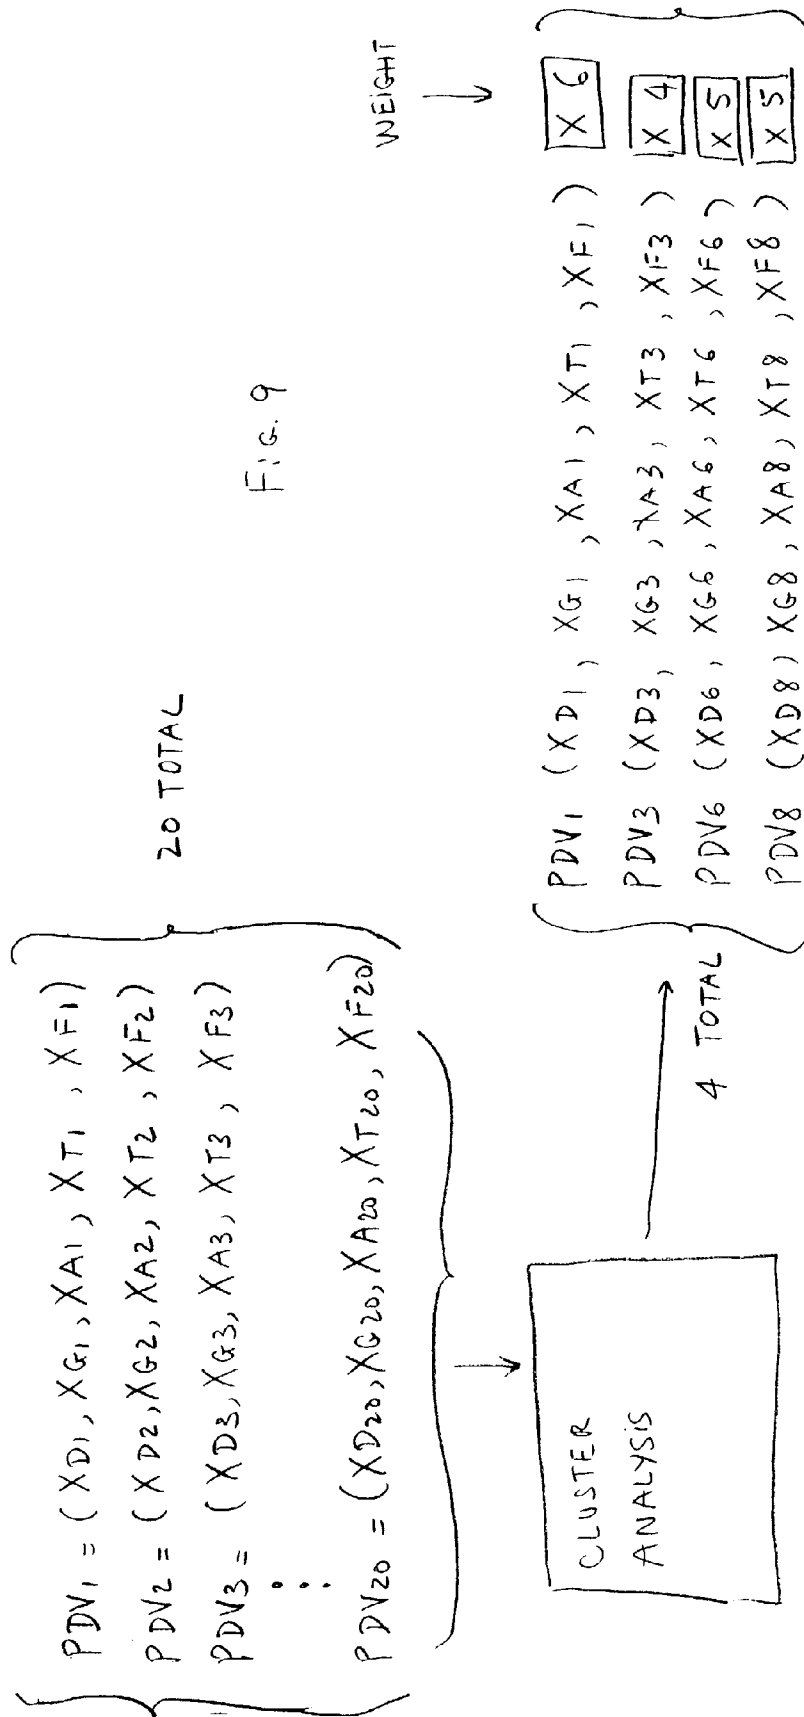 PDV1 = (XD1, XG1, XA1, XT1, XF1)
PDV2 = (XD2, XG2, XA2, XT2, XF2)
PDV3 = (XD3, XG3, XA3, XT3, XF3)
⋮
PDV20 = (XD20, XG20, XA20, XT20, XF20)
20 TOTAL
FIG. 9
CLUSTER
ANALYSIS
4 TOTAL
WEIGHT
PDV1 (XD1, XG1, XA1, XT1, XF1) X 6
PDV3 (XD3, XG3, XA3, XT3, XF3) X 4
PDV6 (XD6, XG6, XA6, XT6, XF6) X 5
PDV8 (XD8, XG8, XA8, XT8, XF8) X 5